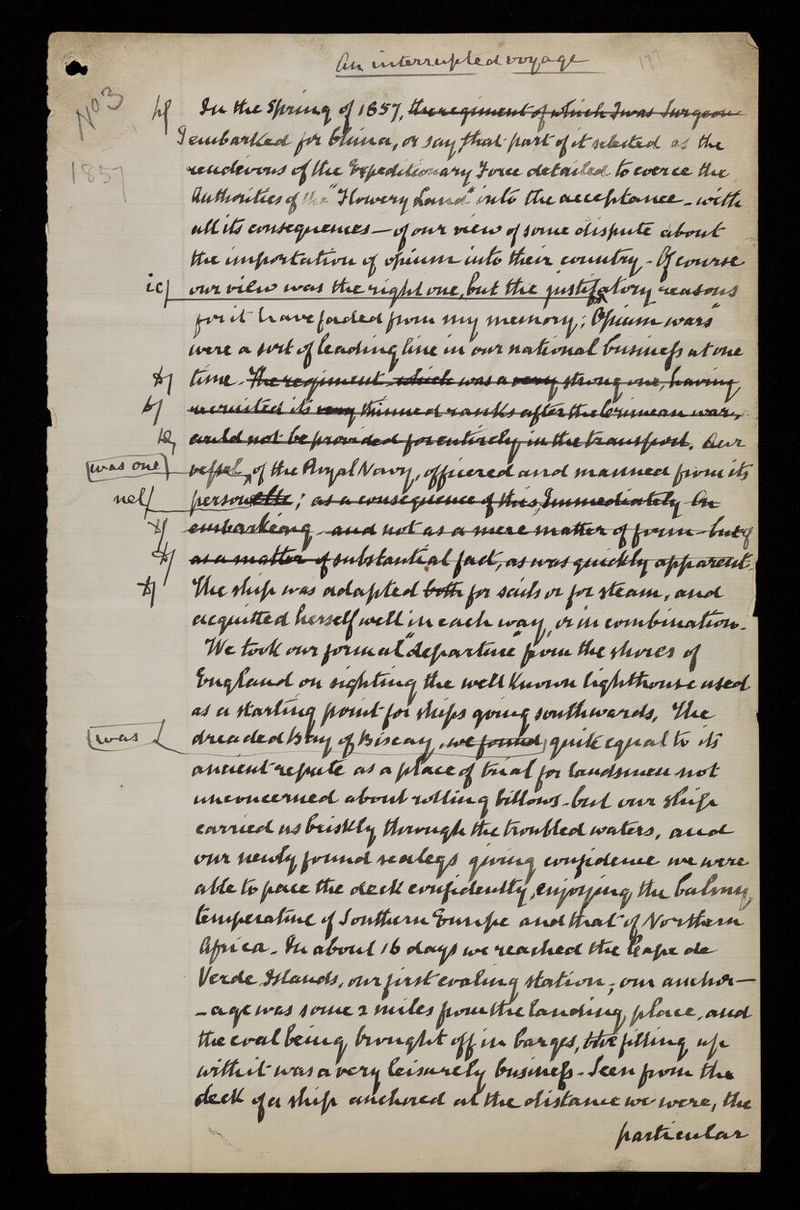 An interrupted voyage
177
No 3
1857
In the Spring of 1857, the regiment of which I was Surgeon
I embarked for China, or say, that part of it selected as the
rendevous of the Expeditionary Force detailed to coerce the
Authorities of the "Flowery Land" into the acceptance - with
all its consequences - of our view of some dispute about
the importation of opium into their country - Of course
ic/ our view was the right one, but the justifatory reasons
for it have faded from my memory; "Opium wars"
were a sort of leading line in our national business at one
time. The regiment which was a very strong one, having
recruited its very thinned ranks after the Crimean war,
could not be provided for entirely in the transport. Our
was one vessel, of the Royal Navy, officered and manned from its
nel/ personelle; as a consequence of this, Immediately On
embarking - and not as a mere matter of form - but
as a matter of substantial fact, as was quickly apparent.
The ship was adapted both for sails or for steam, and
acquitted herself well in each way, or in combination.
We took our formal "departure" from the shores of
England on sighting the well known lighthouse used
as a starting point for ships going southwards, The
was dreaded Bay of Biscay, we found, quite equal to its
ancient repute as a place of trial for landsmen not
unconcerned about rolling billows - but our ship
carried us briskly through the troubled waters, and
our newly found sealegs giving confidence we were
able to pace the deck confidently, enjoying the balmy
temperature of Southern Europe and that of Northern
Africa. In about 16 days we reached the Cape de
Verde Islands, our first coaling station; our anchor-
-age was some 2 miles from the landing place, and
the coal being brought off in barges, the filling up
with it was a very leisurely business - Seen from the
deck of a ship anchored at the distance we were, the
particular